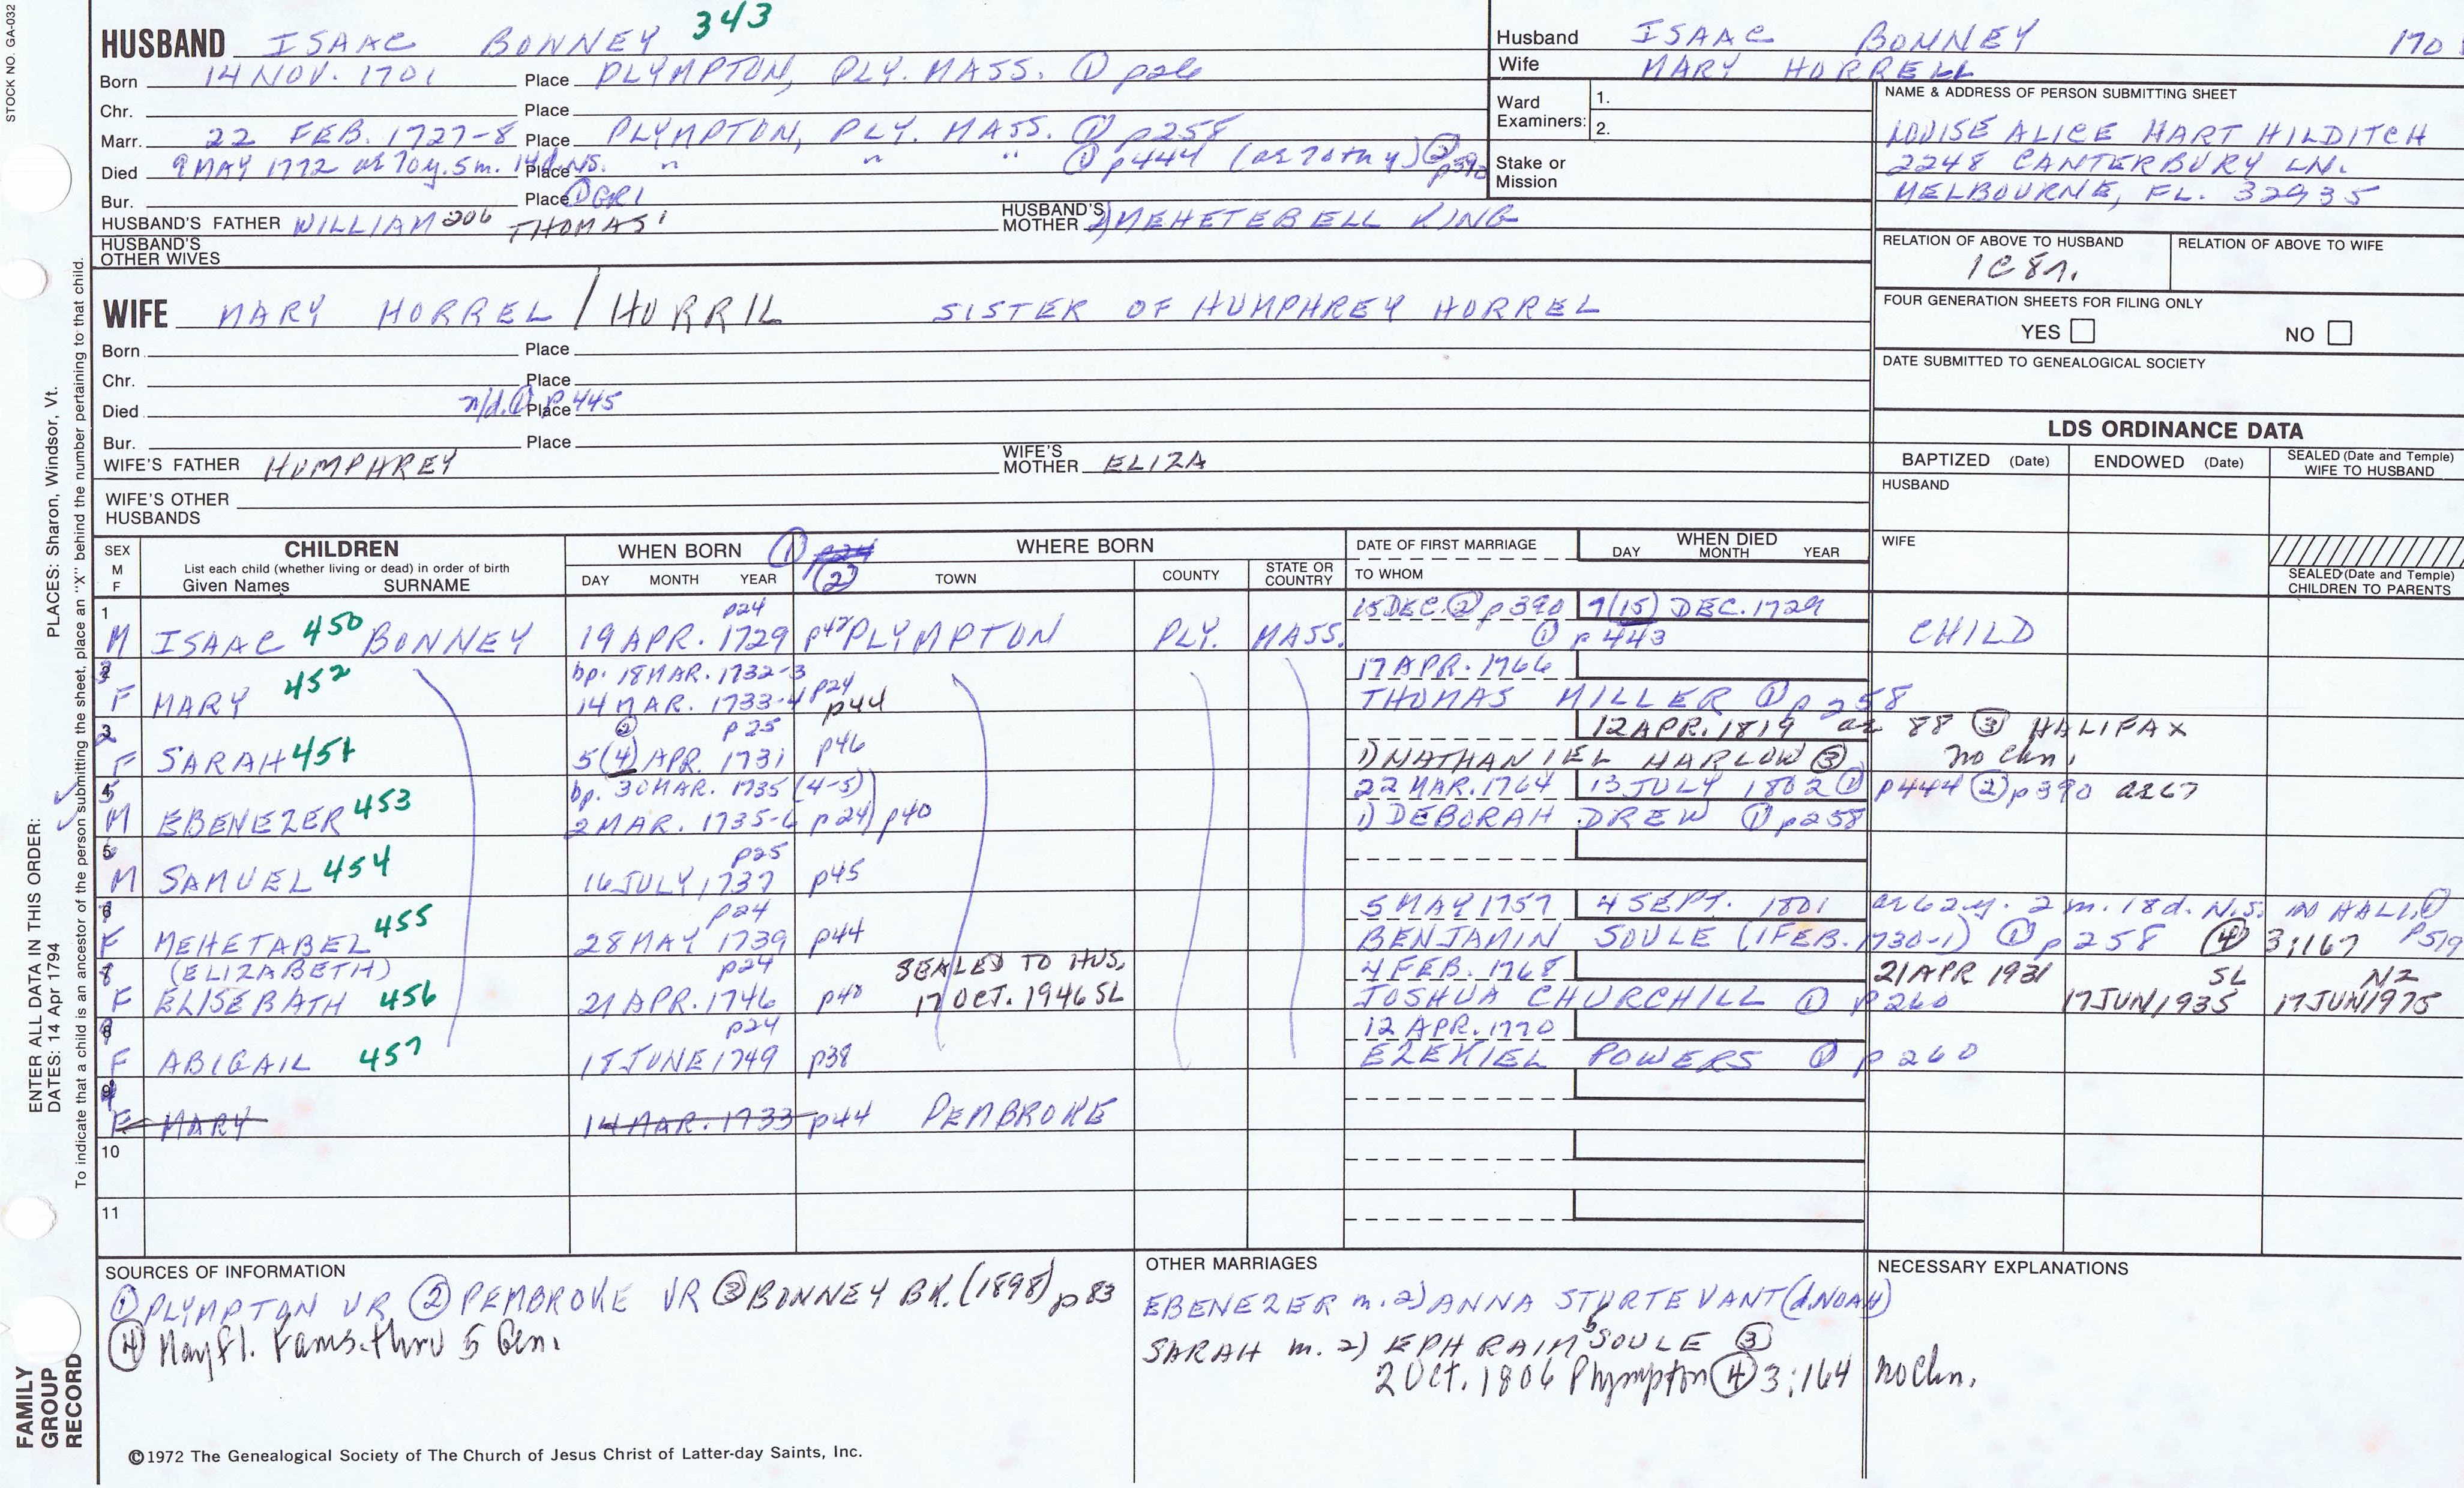 STOCK NO. GA-032
343
HUSBAND ISAAC BONNEY
Born 14 NOV. 1701 Place PLYMPTON, PLY. MASS. ① p26
Chr. Place
Marr. 22 FEB. 1727-8 Place PLYMPTON, PLY. MASS. ① p258
Died 9 MAY 1772 ae 70y. 5m. 14d. NS. Place " " " ① p444 (ae 70th y) ② p390
Bur. Place ① GR1
HUSBAND'S FATHER WILLIAM 206 THOMAS¹ HUSBAND'S MOTHER 2) MEHETEBELL KING
HUSBAND'S OTHER WIVES
Husband ISAAC BONNEY 170
Wife MARY HORRELL
Ward Examiners: 1.
2.
Stake or Mission
NAME & ADDRESS OF PERSON SUBMITTING SHEET
LOUISE ALICE HART HILDITCH
2248 CANTERBURY LN.
MELBOURNE, FL. 32935
RELATION OF ABOVE TO HUSBAND RELATION OF ABOVE TO WIFE
1C8r.
FOUR GENERATION SHEETS FOR FILING ONLY
YES NO
DATE SUBMITTED TO GENEALOGICAL SOCIETY
WIFE MARY HORREL / HORRIL SISTER OF HUMPHREY HORREL
Born Place
Chr. Place
Died n/d. ① p445 Place
Bur. Place
WIFE'S FATHER HUMPHREY WIFE'S MOTHER ELIZA
WIFE'S OTHER HUSBANDS
LDS ORDINANCE DATA
BAPTIZED (Date) ENDOWED (Date) SEALED (Date and Temple) WIFE TO HUSBAND
HUSBAND
WIFE
SEALED (Date and Temple) CHILDREN TO PARENTS
SEX M F CHILDREN List each child (whether living or dead) in order of birth Given Names SURNAME
WHEN BORN DAY MONTH YEAR ① p24 ② WHERE BORN TOWN COUNTY STATE OR COUNTRY
DATE OF FIRST MARRIAGE TO WHOM WHEN DIED DAY MONTH YEAR
1 p24 15 DEC. ② p390 9(15) DEC. 1729
M ISAAC 450 BONNEY 19 APR. 1729 p42 PLYMPTON PLY. MASS. ① p443 CHILD
3 bp. 18 MAR. 1732-3 17 APR. 1766
F MARY 452 14 MAR. 1733-4 p24 p44 THOMAS MILLER ① p258
2 ② p25 12 APR. 1819 ae 88 ③ HALIFAX
F SARAH 451 5(4) APR. 1731 p46 1) NATHANIEL HARLOW ③ no chn.
4 bp. 30 MAR. 1735 (4-5) 22 MAR. 1764 13 JULY 1802 ① p444 ② p390 ae 67
M EBENEZER 453 2 MAR. 1735-6 p24 p40 1) DEBORAH DREW ① p258
5 p25
M SAMUEL 454 16 JULY 1737 p45
6 p24 5 MAY 1757 4 SEPT. 1801 ae 62 y. 2 m. 18 d. N.S. IN HALI. ①
F MEHETABEL 455 28 MAY 1739 p44 BENJAMIN SOULE (1 FEB. 1730-1) ① p258 ④ 3:167 P519
7 (ELIZABETH) p24 SEALED TO HUS. 4 FEB. 1768 21 APR 1931 SL NZ
F ELISEBATH 456 21 APR. 1746 p40 17 OCT. 1946 SL JOSHUA CHURCHILL ① p260 17 JUN 1935 17 JUN 1975
8 p24 12 APR. 1770
F ABIGAIL 457 18 JUNE 1749 p38 EZEKIEL POWERS ① p260
9
F MARY 14 MAR. 1733 p44 PEMBROKE
10
11
SOURCES OF INFORMATION
① PLYMPTON VR ② PEMBROKE VR ③ BONNEY BK. (1898) p83
④ Mayfl. Fams. thru 5 Gen.
OTHER MARRIAGES
EBENEZER m. 2) ANNA STURTEVANT (d. NOAH)
SARAH m. 2) EPHRAIM⁵ SOULE ③
2 Oct. 1806 Plympton ④ 3:164 no Chn.
NECESSARY EXPLANATIONS
©1972 The Genealogical Society of The Church of Jesus Christ of Latter-day Saints, Inc.
FAMILY GROUP RECORD
ENTER ALL DATA IN THIS ORDER:
DATES: 14 Apr 1794 PLACES: Sharon, Windsor, Vt.
To indicate that a child is an ancestor of the person submitting the sheet, place an "X" behind the number pertaining to that child.